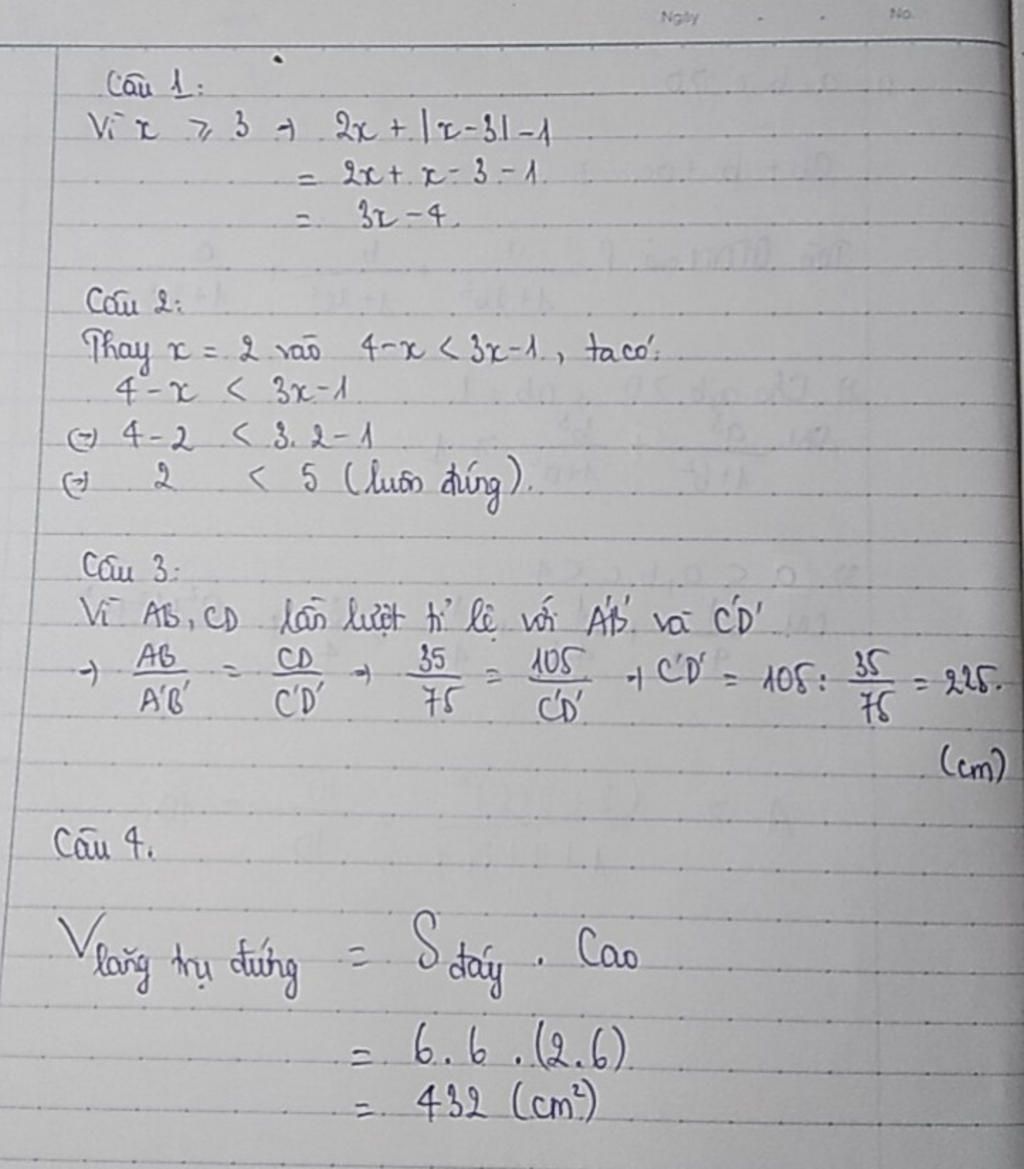 Ngày . . No.
Câu 1:
Vì x ⩾ 3 → 2x + |x-3| - 1
= 2x + x - 3 - 1
= 3x - 4.
Câu 2:
Thay x = 2 vào 4-x < 3x-1, ta có:
4 - x < 3x - 1
(=) 4 - 2 < 3.2 - 1
(=) 2 < 5 (luôn đúng).
Câu 3:
Vì AB, CD lần lượt tỉ lệ với A'B' và C'D'
→ AB/A'B' = CD/C'D' → 35/75 = 105/C'D' → C'D' = 105 : 35/75 = 225.
(cm)
Câu 4.
V lăng trụ đứng = S đáy . Cao
= 6.6.(2.6)
= 432 (cm²)